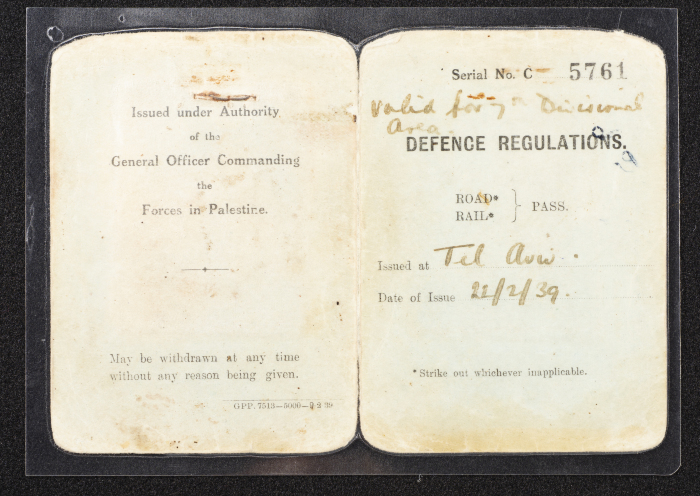 Issued under Authority
of the
General Officer Commanding
the
Forces in Palestine.
May be withdrawn at any time
without any reason being given.
GPP. 7513—5000—2 2 39
Serial No. C 5761
Valid for 7th Divisional
Area.
DEFENCE REGULATIONS.
ROAD*
RAIL* } PASS.
Issued at Tel Aviv.
Date of Issue 21/2/39.
*Strike out whichever inapplicable.